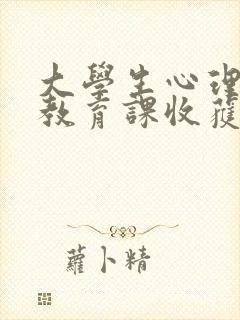 大學生心理
教育課收獲
蘿卜精